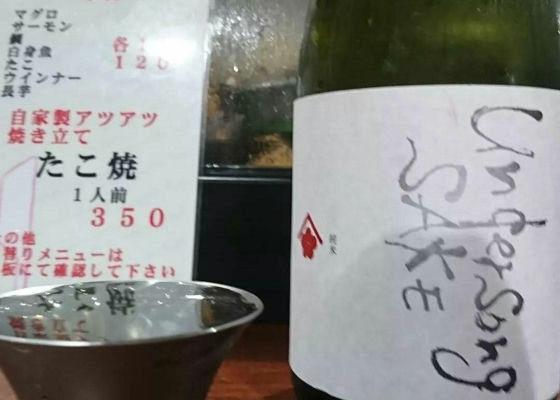 マグロ
サーモン
鯛
白身魚
たこ
ウインナー
長芋
各
120
自家製アツアツ
焼き立て
たこ焼
1人前
350
の他
替りメニューは
板にて確認して下さい
純米
SAKE